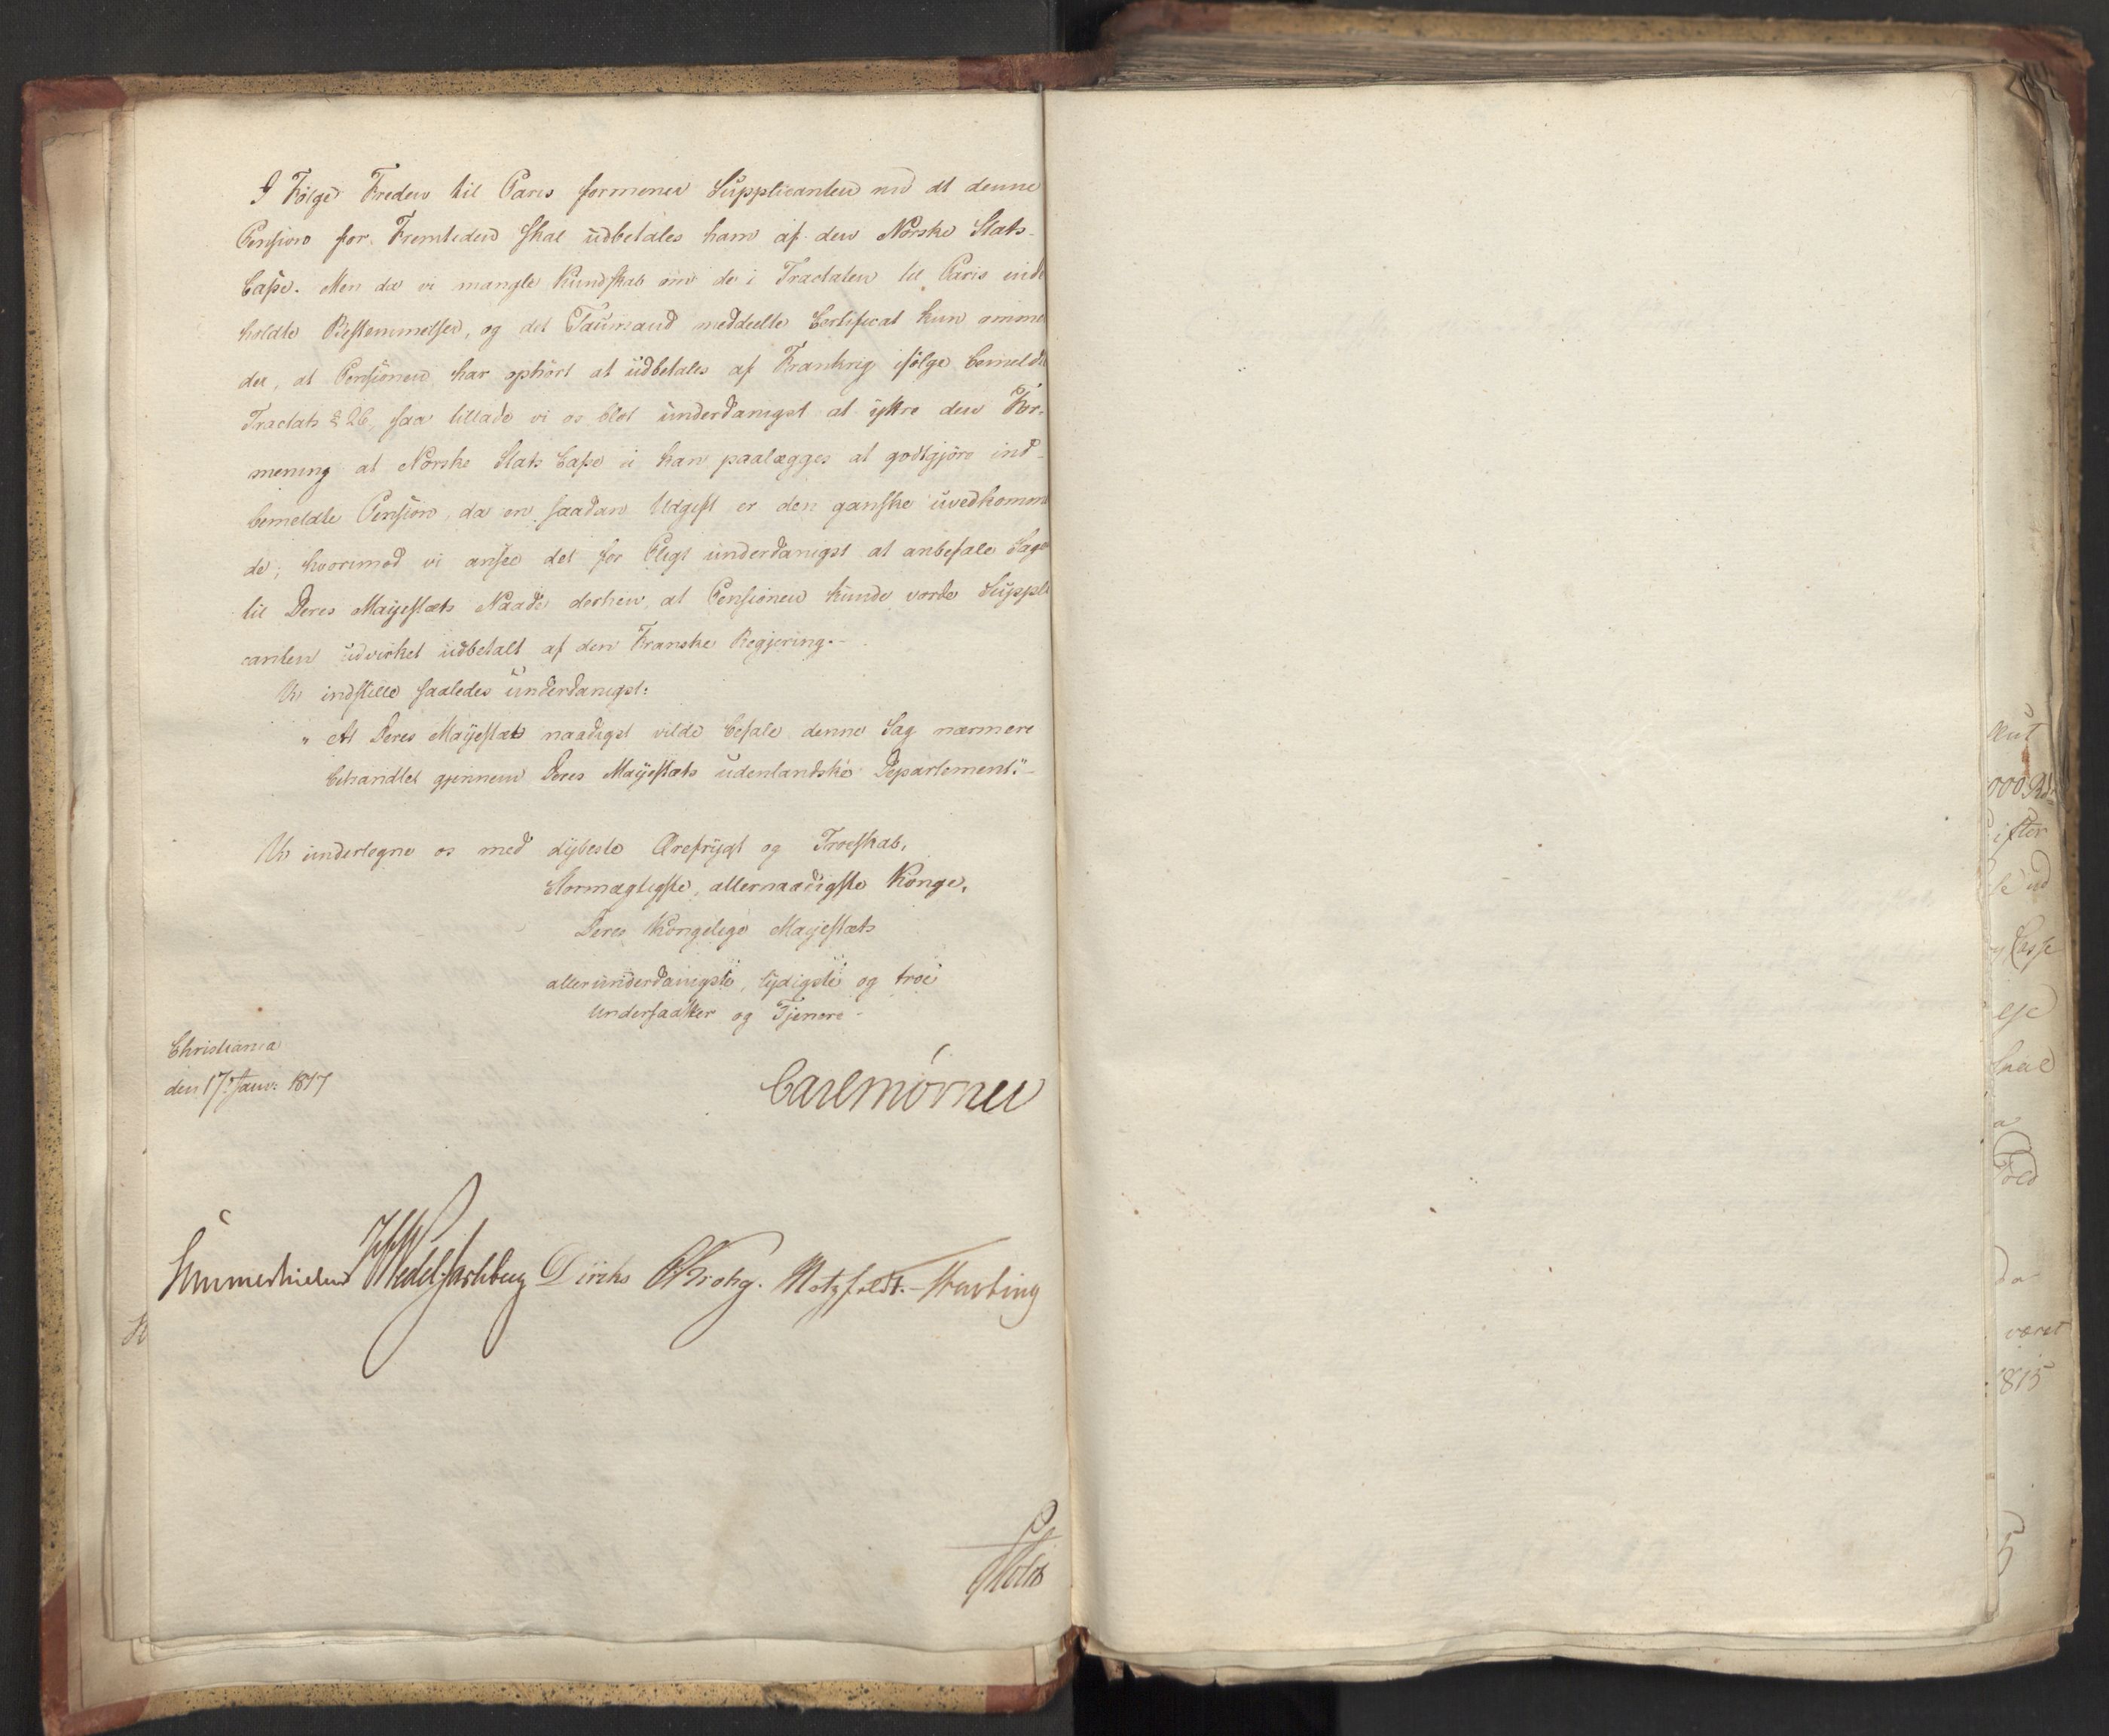 I Følge Freden til Paris formener Supplicanten nu at denne
Pension for Fremtiden skal udbetales ham af den Norske Stats-
Casse. Men da vi mangle Kundskab om de i Tractaten til Paris inde
holdte Bestemmelser, og det Taumand meddeelte Certificat kun omme
der, at Pensionen har ophørt at udbetales af Frankrig ifølge bemeldte
Tractats § 26, saa tillade vi os blot underdanigst at yttre den For-
mening at Norske Stats Casse ei kan paalægges at godtgjøre ind-
bemeldte Pension, da en saadan Udgift er den ganske uvedkommen
de; hvorimod vi ansee det for Pligt underdanigst at anbefale Sagen
til Deres Majestæts Naade derhen, at Pensionen kunde vorde Suppli
canten udvirket udbetalt af den Franske Regjering.-
Vi indstille saaledes underdanigst:
" At Deres Majestæt naadigst vilde befale denne Sag nærmere
behandlet gjennem Deres Majestæts udenlandske Departement."-
Vi undertegne os med dybeste Ærefrygt og Troeskab,
Stormægtigste, allernaadigste Konge,
Deres Kongelige Majestæts
allerunderdanigste, lydigste og troe
Undersaatter og Tjenere-
Christiania
den 17de Janv: 1817
Carl Mörner
Sommerhielm Wedel Jarlsberg Diriks CKrohg. Motzfeldt.- Hertzberg
Holst
000 Rd
ifter
Casse
skal
Told
Da
været
1815